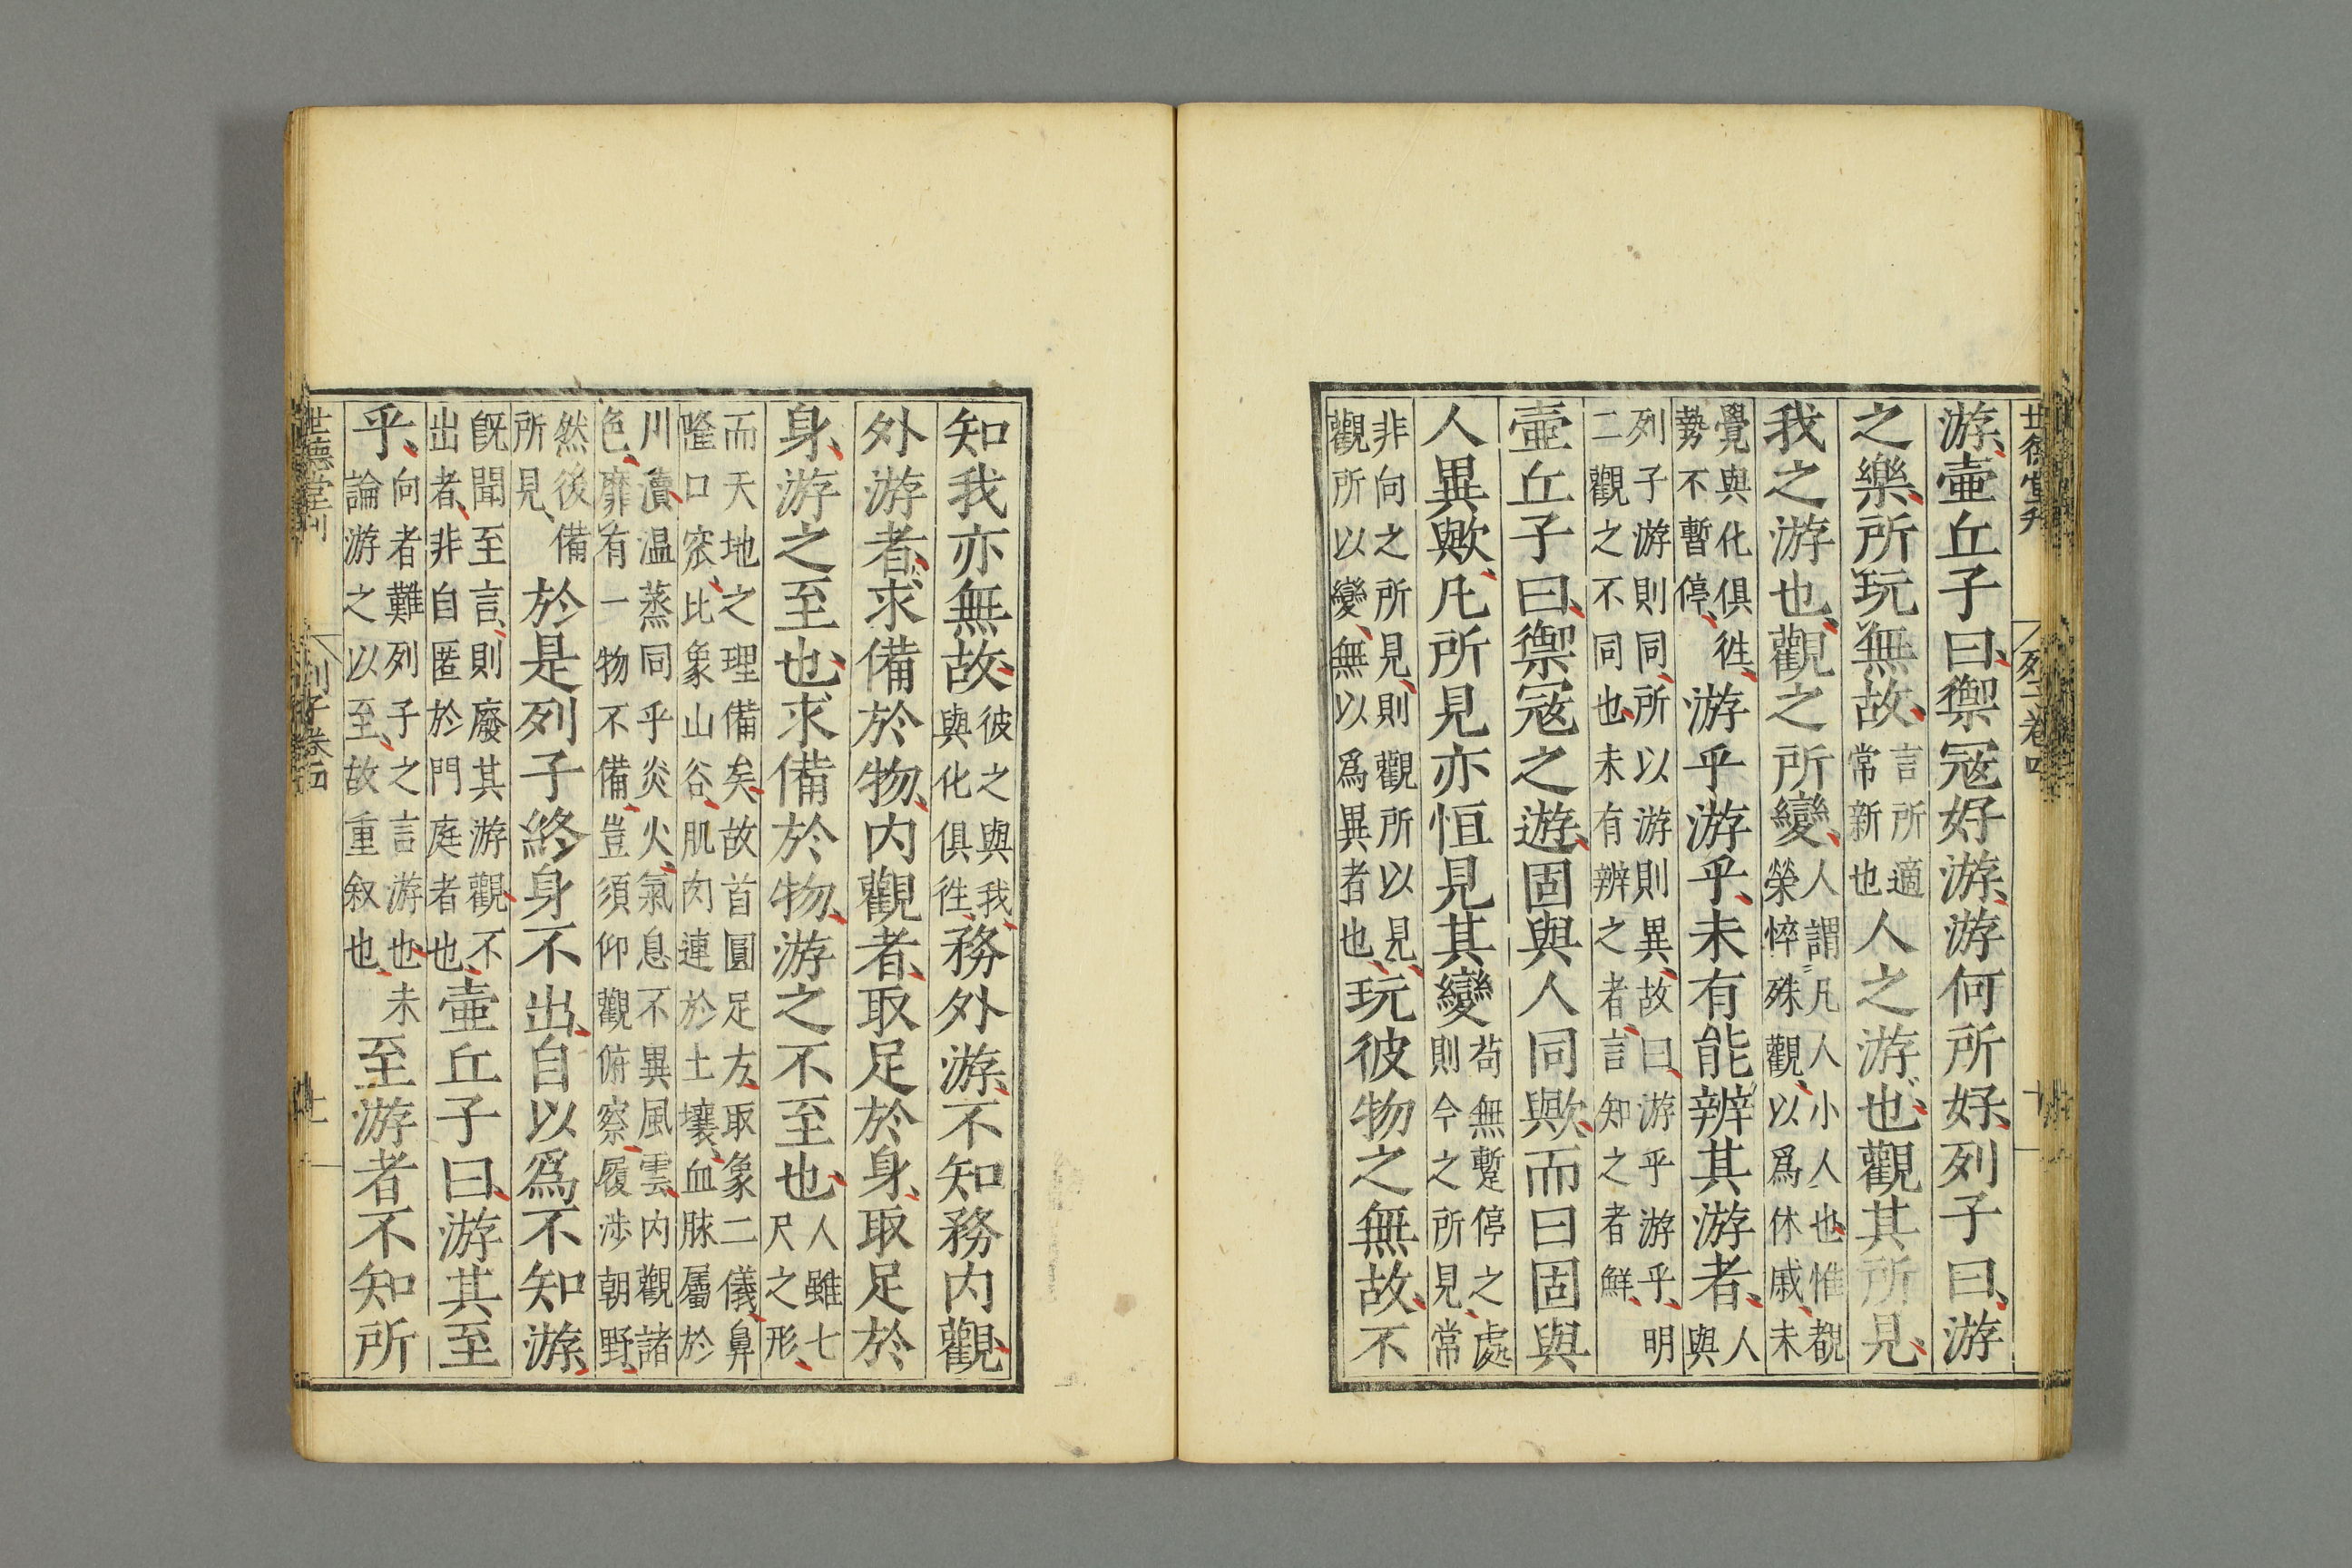 世德堂刊 列子卷四 十
游壷丘子曰禦冦好游游何所好列子曰游
之樂所玩無故言所適常新也人之游也觀其所見
我之游也觀之所變人謂凡人小人也惟覩榮悴殊觀以爲休戚未
覺與化俱徃勢不暫停游乎游乎未有能辨其游者人與
列子游則同所以游則異故曰游乎游乎明二觀之不同也未有辨之者言知之者鮮
壷丘子曰禦冦之遊固與人同歟而曰固與
人異歟凡所見亦恒見其變苟無蹔停之處則今之所見常
非向之所見則觀所以見觀所以變無以爲異者也玩彼物之無故不
知我亦無故彼之與我與化俱徃務外游不知務内觀
外游者求備於物内觀者取足於身取足於
身游之至也求備於物游之不至也人雖七尺之形
而天地之理備矣故首圓足方取象二儀鼻隆口窊比象山谷肌肉連於土壤血脉屬於
川瀆温蒸同乎炎火氣息不異風雲内觀諸色靡有一物不備豈須仰觀俯察履涉朝野
然後備所見於是列子終身不出自以爲不知游
既聞至言則廢其游觀不出者非自匿於門庭者也壷丘子曰游其至
乎向者難列子之言游也未論游之以至故重叙也至游者不知所
世德堂刊 列子卷四